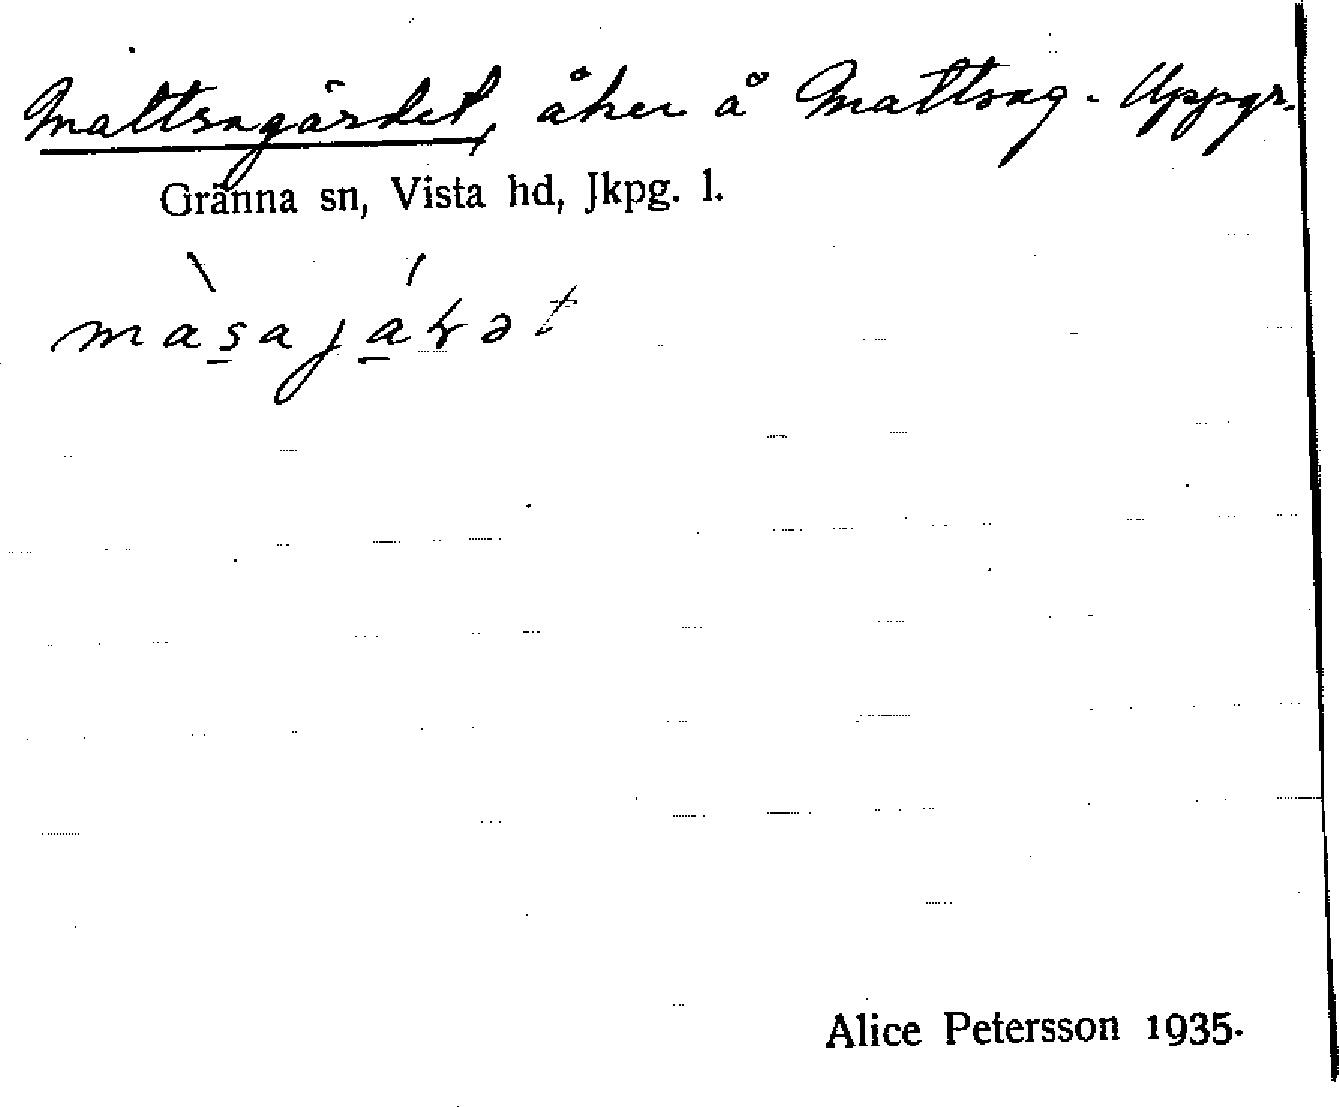 Mattsngärdet, åker å Mattsng - Uppgr.
Gränna sn, Vista hd, Jkpg. l.
Alice Petersson 1935.